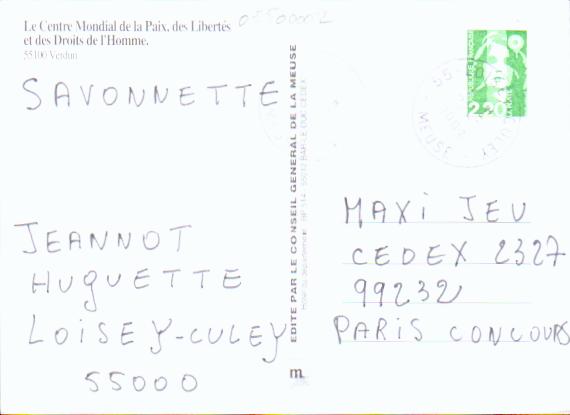 Le Centre Mondial de la Paix, des Libertés
et des Droits de l'Homme.
55100 Verdun
SAVONNETTE
JEANNOT
HUGUETTE
LOISEY-CULEY
55000
EDITE PAR LE CONSEIL GENERAL DE LA MEUSE
m
2,20
55
CULEY
MEUSE
MAXI JEU
CEDEX 2327
99232
PARIS CONCOURS